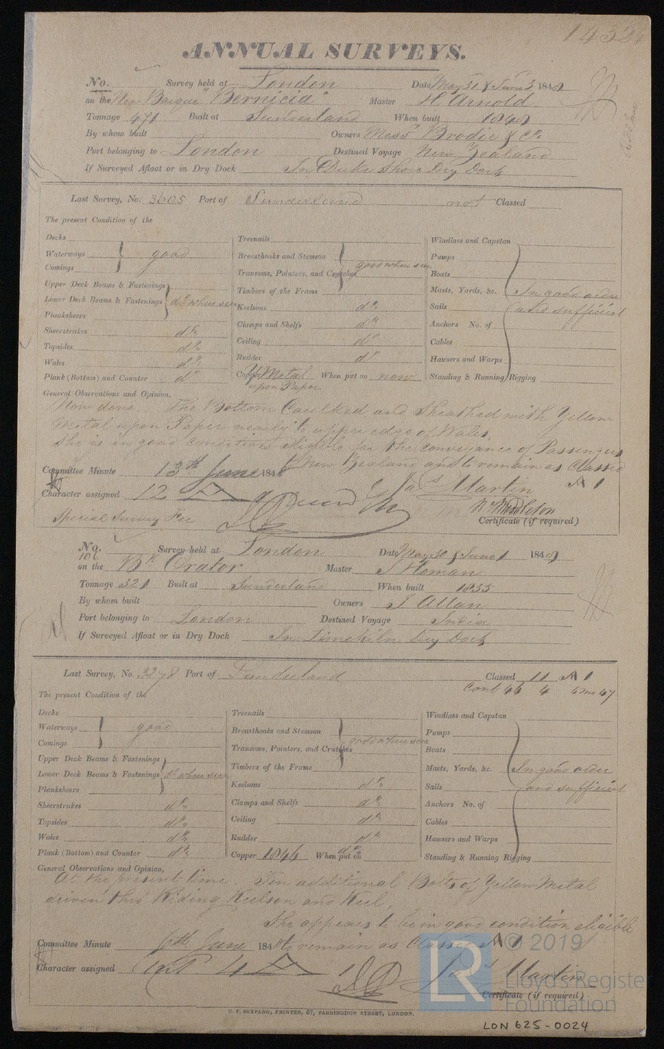 ANNUAL SURVEYS.
No. Survey held at London Date May 31 & June 3 1848
on the New Barque "Bernicia" Master H Arnold
Tonnage 471 Built at Sunderland When built 1848
By whom built Owners Messrs Brodie & Co
Port belonging to London Destined Voyage New Zealand
If Surveyed Afloat or in Dry Dock In Duke Shore Dry Dock
Last Survey, No. 3605 Port of Sunderland not Classed
The present Condition of the
Decks
Waterways good
Comings
Upper Deck Beams & Fastenings
Lower Deck Beams & Fastenings do where seen
Planksheers
Sheerstrakes do
Topsides do
Wales do
Plank (Bottom) and Counter do
Treenails
Breasthooks and Stemson good where seen
Transoms, Pointers, and Crutches
Timbers of the Frame
Keelsons do
Clamps and Shelfs do
Ceiling do
Rudder do
Copper Y Metal When put on now
upon Paper
Windlass and Capstan
Pumps
Boats
Masts, Yards, &c. In good order
Sails and sufficient
Anchors No. of
Cables
Hawsers and Warps
Standing & Running Rigging
General Observations and Opinion,
Now done. The Bottom Caulked and Sheathed with Yellow
Metal upon Paper nearly to upper edge of Wales,
She is in good condition eligible for the conveyance of Passengers
to New Zealand and to remain as Classed
Committee Minute 13th June 184 A1
Character assigned 12 A 1 Jas Martin
Special Survey Fee
Certificate (if required)
No. Survey held at London Date May 31 & June 1 184
on the Bk Orator Master J Homan
Tonnage 321 Built at Sunderland When built 1835
By whom built Owners J Allan
Port belonging to London Destined Voyage India
If Surveyed Afloat or in Dry Dock In Limekiln Dry Dock
Last Survey, No. 3278 Port of Sunderland Classed 11 A1
Cont 46 4
The present Condition of the
Decks
Waterways good
Comings
Upper Deck Beams & Fastenings
Lower Deck Beams & Fastenings do where seen
Planksheers
Sheerstrakes do
Topsides do
Wales do
Plank (Bottom) and Counter do
Treenails
Breasthooks and Stemson good where seen
Transoms, Pointers, and Crutches
Timbers of the Frame
Keelsons do
Clamps and Shelfs do
Ceiling do
Rudder do
Copper 1846 When put on do
Windlass and Capstan
Pumps
Boats
Masts, Yards, &c. In good order
Sails and sufficient
Anchors No. of
Cables
Hawsers and Warps
Standing & Running Rigging
General Observations and Opinion,
At the present time. Ten additional Bolts of Yellow Metal
driven thro' Riding Keelson and Keel,
She appears to be in good condition eligible
to remain as Classed A1
Committee Minute 6th June 184
Character assigned Cont 4 A 1 Jas Martin
Certificate (if required)
© 2019
LR
Lloyd's Register
Foundation
LON 625-0024